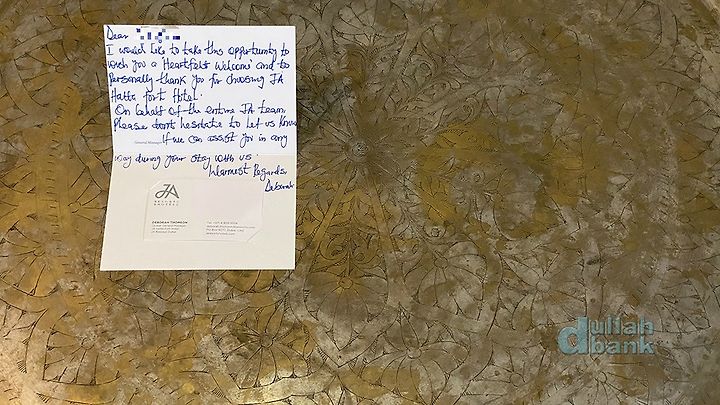 Dear
I would like to take this opportunity to
wish you a Heartfelt Welcome and to
Personally thank you for choosing JA
Hatta Fort Hotel.
On behalf of the entire JA team,
Please dont hesitate to let us know
General Manager
if we can assist you in any
way during your stay with us.
Warmest Regards,
Deborah
JA
RESORTS
& HOTELS
DEBORAH THOMSON
dullah
bank